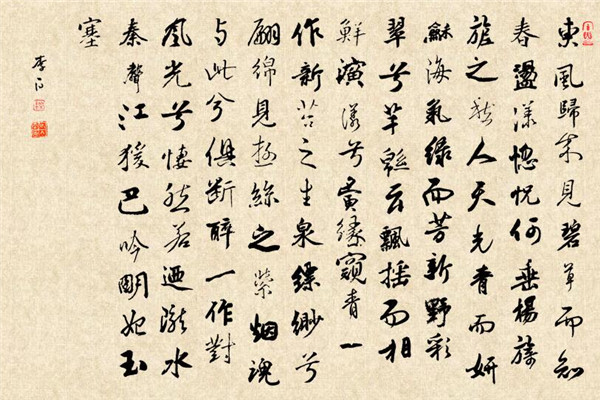 東風歸來見碧草而知
春盪漾惚怳何垂楊旖
旎之愁人天光青而妍
龢海氣綠而芳新野彩
翠兮芊緜云飄揺而相
鮮演漾兮夤緣窺青一
作新苔之生泉縹緲兮
翩綿見遊絲之縈烟魂
與此兮俱斷醉一作對
風光兮悽然若迺隴水
秦聲江猨巴吟朙妃玉
塞
李白